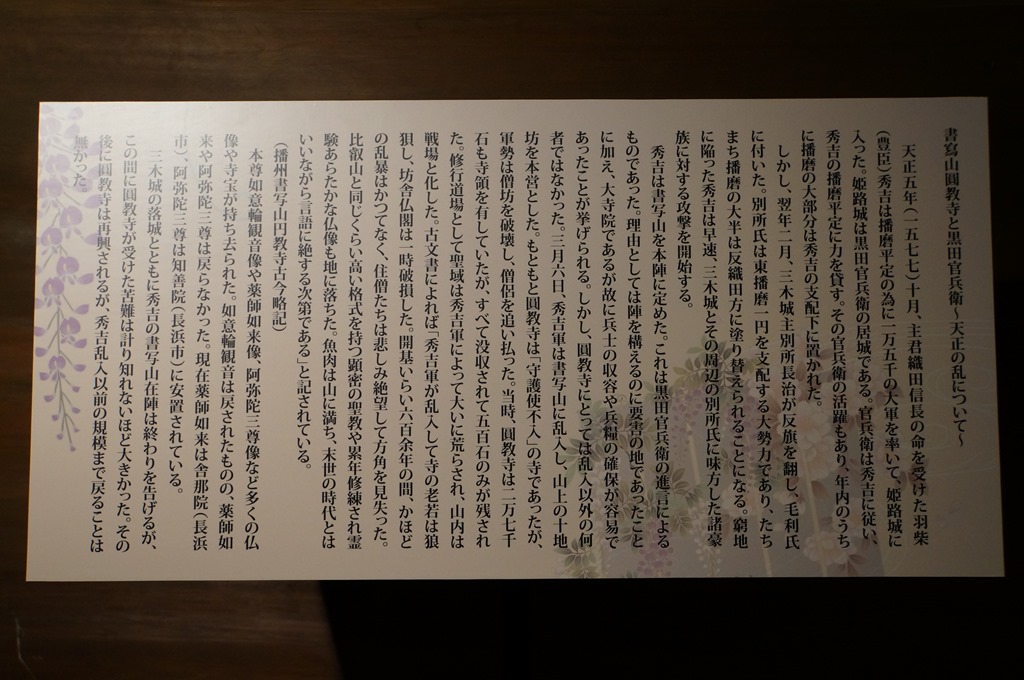 書寫山圓教寺と黒田官兵衛～天正の乱について～
天正五年(一五七七)十月、主君織田信長の命を受けた羽柴
(豊臣)秀吉は播磨平定の為に一万五千の大軍を率いて、姫路城に
入った。姫路城は黒田官兵衛の居城である。官兵衛は秀吉に従い、
秀吉の播磨平定に力を貸す。その官兵衛の活躍もあり、年内のうち
に播磨の大部分は秀吉の支配下に置かれた。
しかし、翌年二月、三木城主別所長治が反旗を翻し、毛利氏
に付いた。別所氏は東播磨一円を支配する大勢力であり、たち
まち播磨の大半は反織田方に塗り替えられることになる。窮地
に陥った秀吉は早速、三木城とその周辺の別所氏に味方した諸豪
族に対する攻撃を開始する。
秀吉は書写山を本陣に定めた。これは黒田官兵衛の進言による
ものであった。理由としては陣を構えるのに要害の地であったこと
に加え、大寺院であるが故に兵士の収容や兵糧の確保が容易で
あったことが挙げられる。しかし、圓教寺にとっては乱入以外の何
者ではなかった。三月六日、秀吉軍は書写山に乱入し、山上の十地
坊を本営とした。もともと圓教寺は「守護使不入」の寺であったが、
軍勢は僧坊を破壊し、僧侶を追い払った。当時、圓教寺は二万七千
石も寺領を有していたが、すべて没収されて五百石のみが残され
た。修行道場として聖域は秀吉軍によって大いに荒らされ、山内は
戦場と化した。古文書によれば「秀吉軍が乱入して寺の老若は狼
狽し、坊舎仏閣は一時破損した。開基いらい六百余年の間、かほど
の乱暴はかつてなく、住僧たちは悲しみ絶望して方角を見失った。
比叡山と同じくらい高い格式を持つ顕密の聖教や累年修練され霊
験あらたかな仏像も地に落ちた。魚肉は山に満ち、末世の時代とは
いいながら言語に絶する次第である」と記されている。
(播州書写山円教寺古今略記)
本尊如意輪観音像や薬師如来像、阿弥陀三尊像など多くの仏
像や寺宝が持ち去られた。如意輪観音は戻されたものの、薬師如
来や阿弥陀三尊は戻らなかった。現在薬師如来は舎那院(長浜
市)、阿弥陀三尊は知善院(長浜市)に安置されている。
三木城の落城とともに秀吉の書写山在陣は終わりを告げるが、
この間に圓教寺が受けた苦難は計り知れないほど大きかった。その
後に圓教寺は再興されるが、秀吉乱入以前の規模まで戻ることは
無かった。